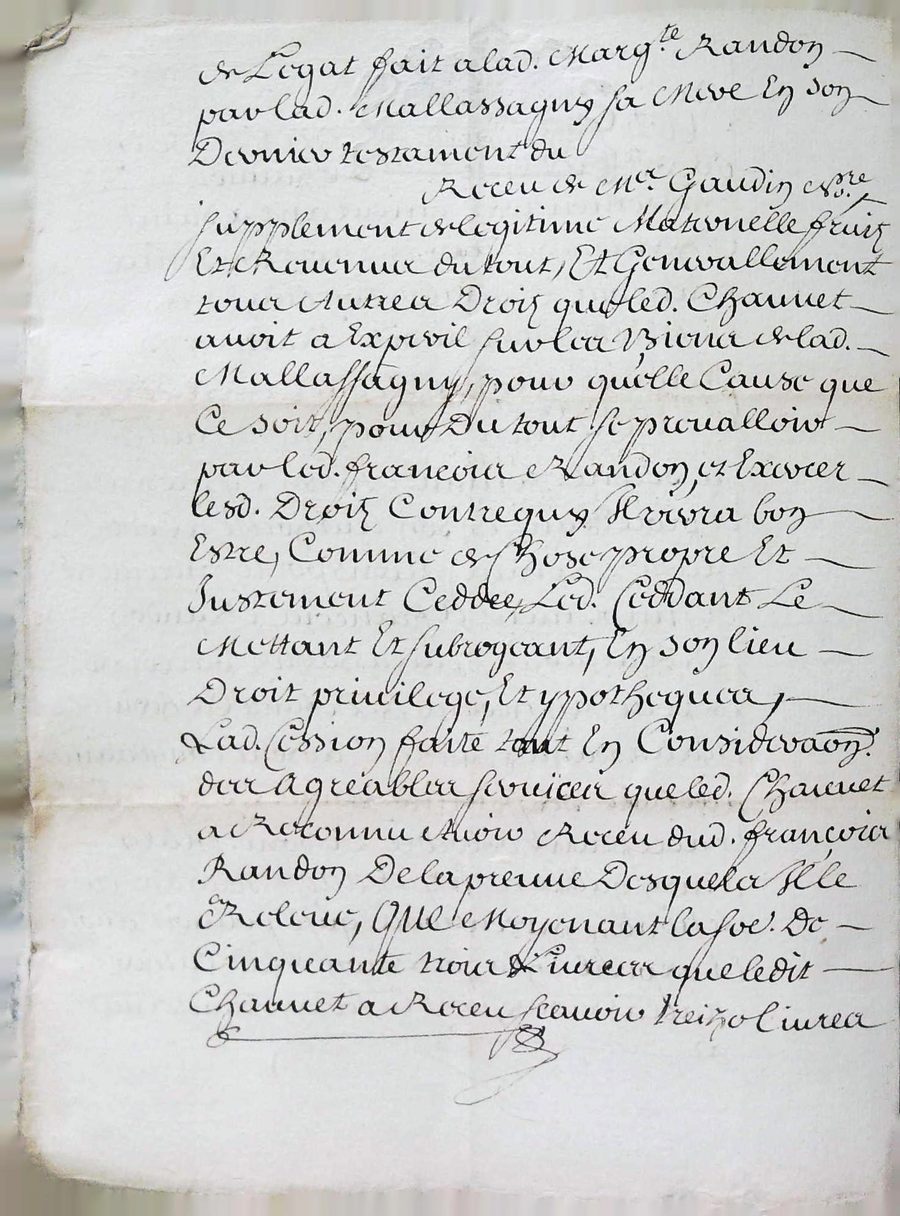 de Legat fait a lad. Marg.te Randon
par lad. Mallassagny sa Mere En son
Dernier testament du
Receu de Me. Gaudin No.re,
supplement de legitime Maternelle fruitz
Et Revenus du tout, Et Generallement
tous Autres Droitz que led. Chauvet
avoit a Exper sur les Biens de lad.
Mallassagny, pour quelle Cause que
Ce soit, pour Du tout se prevalloir
par led. françois Randon, et Exercer
lesd. Droitz Contre quy Il verra bon
Estre, Comme de Chose propre Et
Justement Ceddée, Led. Ceddant Le
Mettant Et subrogeant, En son lieu
Droit privilege, Et ypotheques,
Lad. Cession faite tant En Consideraon.
des Agreables services que led. Chauvet
a Reconnu Avoir Receu dud. françois
Randon De la preuve Desquels Il le
Releve, QUe Moyenant la soe. De
Cinquante trois Livres que ledit
Chauvet a Receu scavoir treize livres